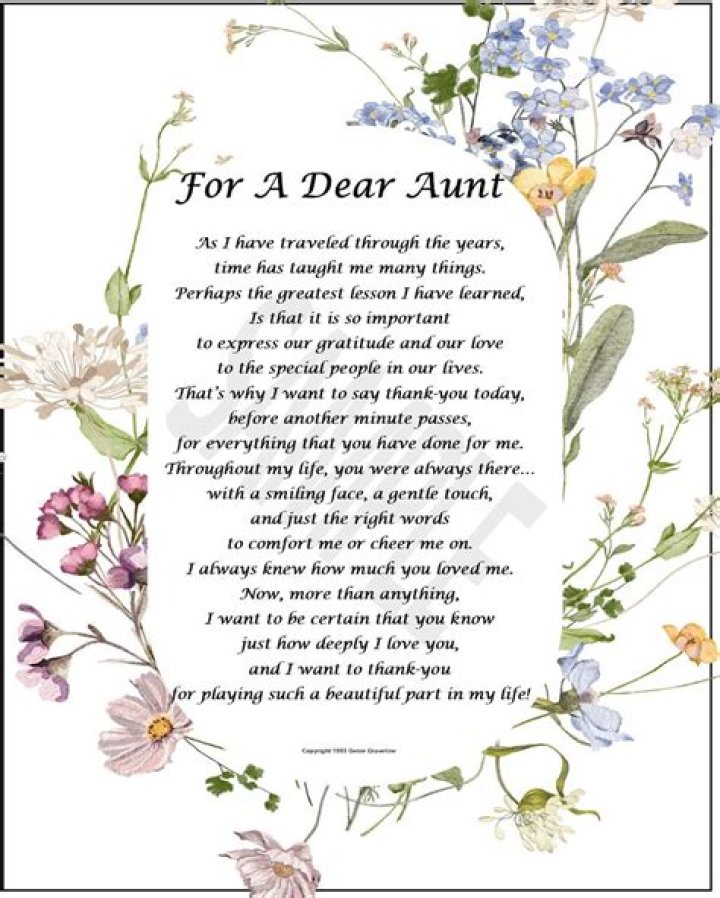 For A Dear Aunt
As I have traveled through the years,
time has taught me many things.
Perhaps the greatest lesson I have learned,
Is that it is so important
to express our gratitude and our love
to the special people in our lives.
That's why I want to say thank-you today,
before another minute passes,
for everything that you have done for me.
Throughout my life, you were always there...
with a smiling face, a gentle touch,
and just the right words
to comfort me or cheer me on.
I always knew how much you loved me.
Now, more than anything,
I want to be certain that you know
just how deeply I love you,
and I want to thank-you
for playing such a beautiful part in my life!
Copyright 1993 Genie Graveline
SAMPLE